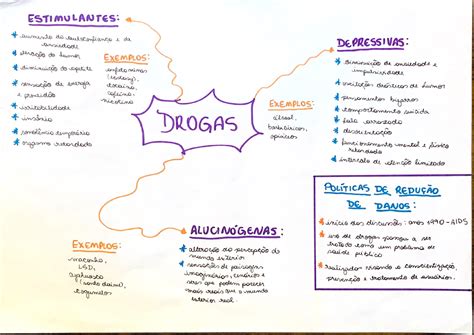 ESTIMULANTES:
aumento da autoconfiança e da
ansiedade
elevação do humor
diminuição do apetite
sensação de energia
e prazer
irritabilidade
insônia
impotência temporária
orgasmo retardado
EXEMPLOS:
anfetaminas
(ecstasy),
cocaína,
cafeína,
nicotina
DROGAS
DEPRESSIVAS:
diminuição da ansiedade e
impulsividade
oscilações drásticas de humor
pensamentos bizarros
comportamento suicida
fala arrastada
desorientação
funcionamento mental e físico
retardado
intervalo de atenção limitado
EXEMPLOS:
álcool,
barbitúricos,
opiáceos
ALUCINÓGENAS:
alteração da percepção do
mundo exterior
sensações de paisagens
imaginárias, cenários e
seres que podem parecer
mais reais que o mundo
exterior real.
EXEMPLOS:
maconha,
LSD,
ayahuasca
(santo daime),
cogumelos
POLÍTICAS DE REDUÇÃO
DE DANOS:
início das discussões: anos 1990 - AIDS
uso de drogas passou a ser
tratado como um problema de
saúde pública
visando a conscientização,
prevenção e tratamento de usuários.